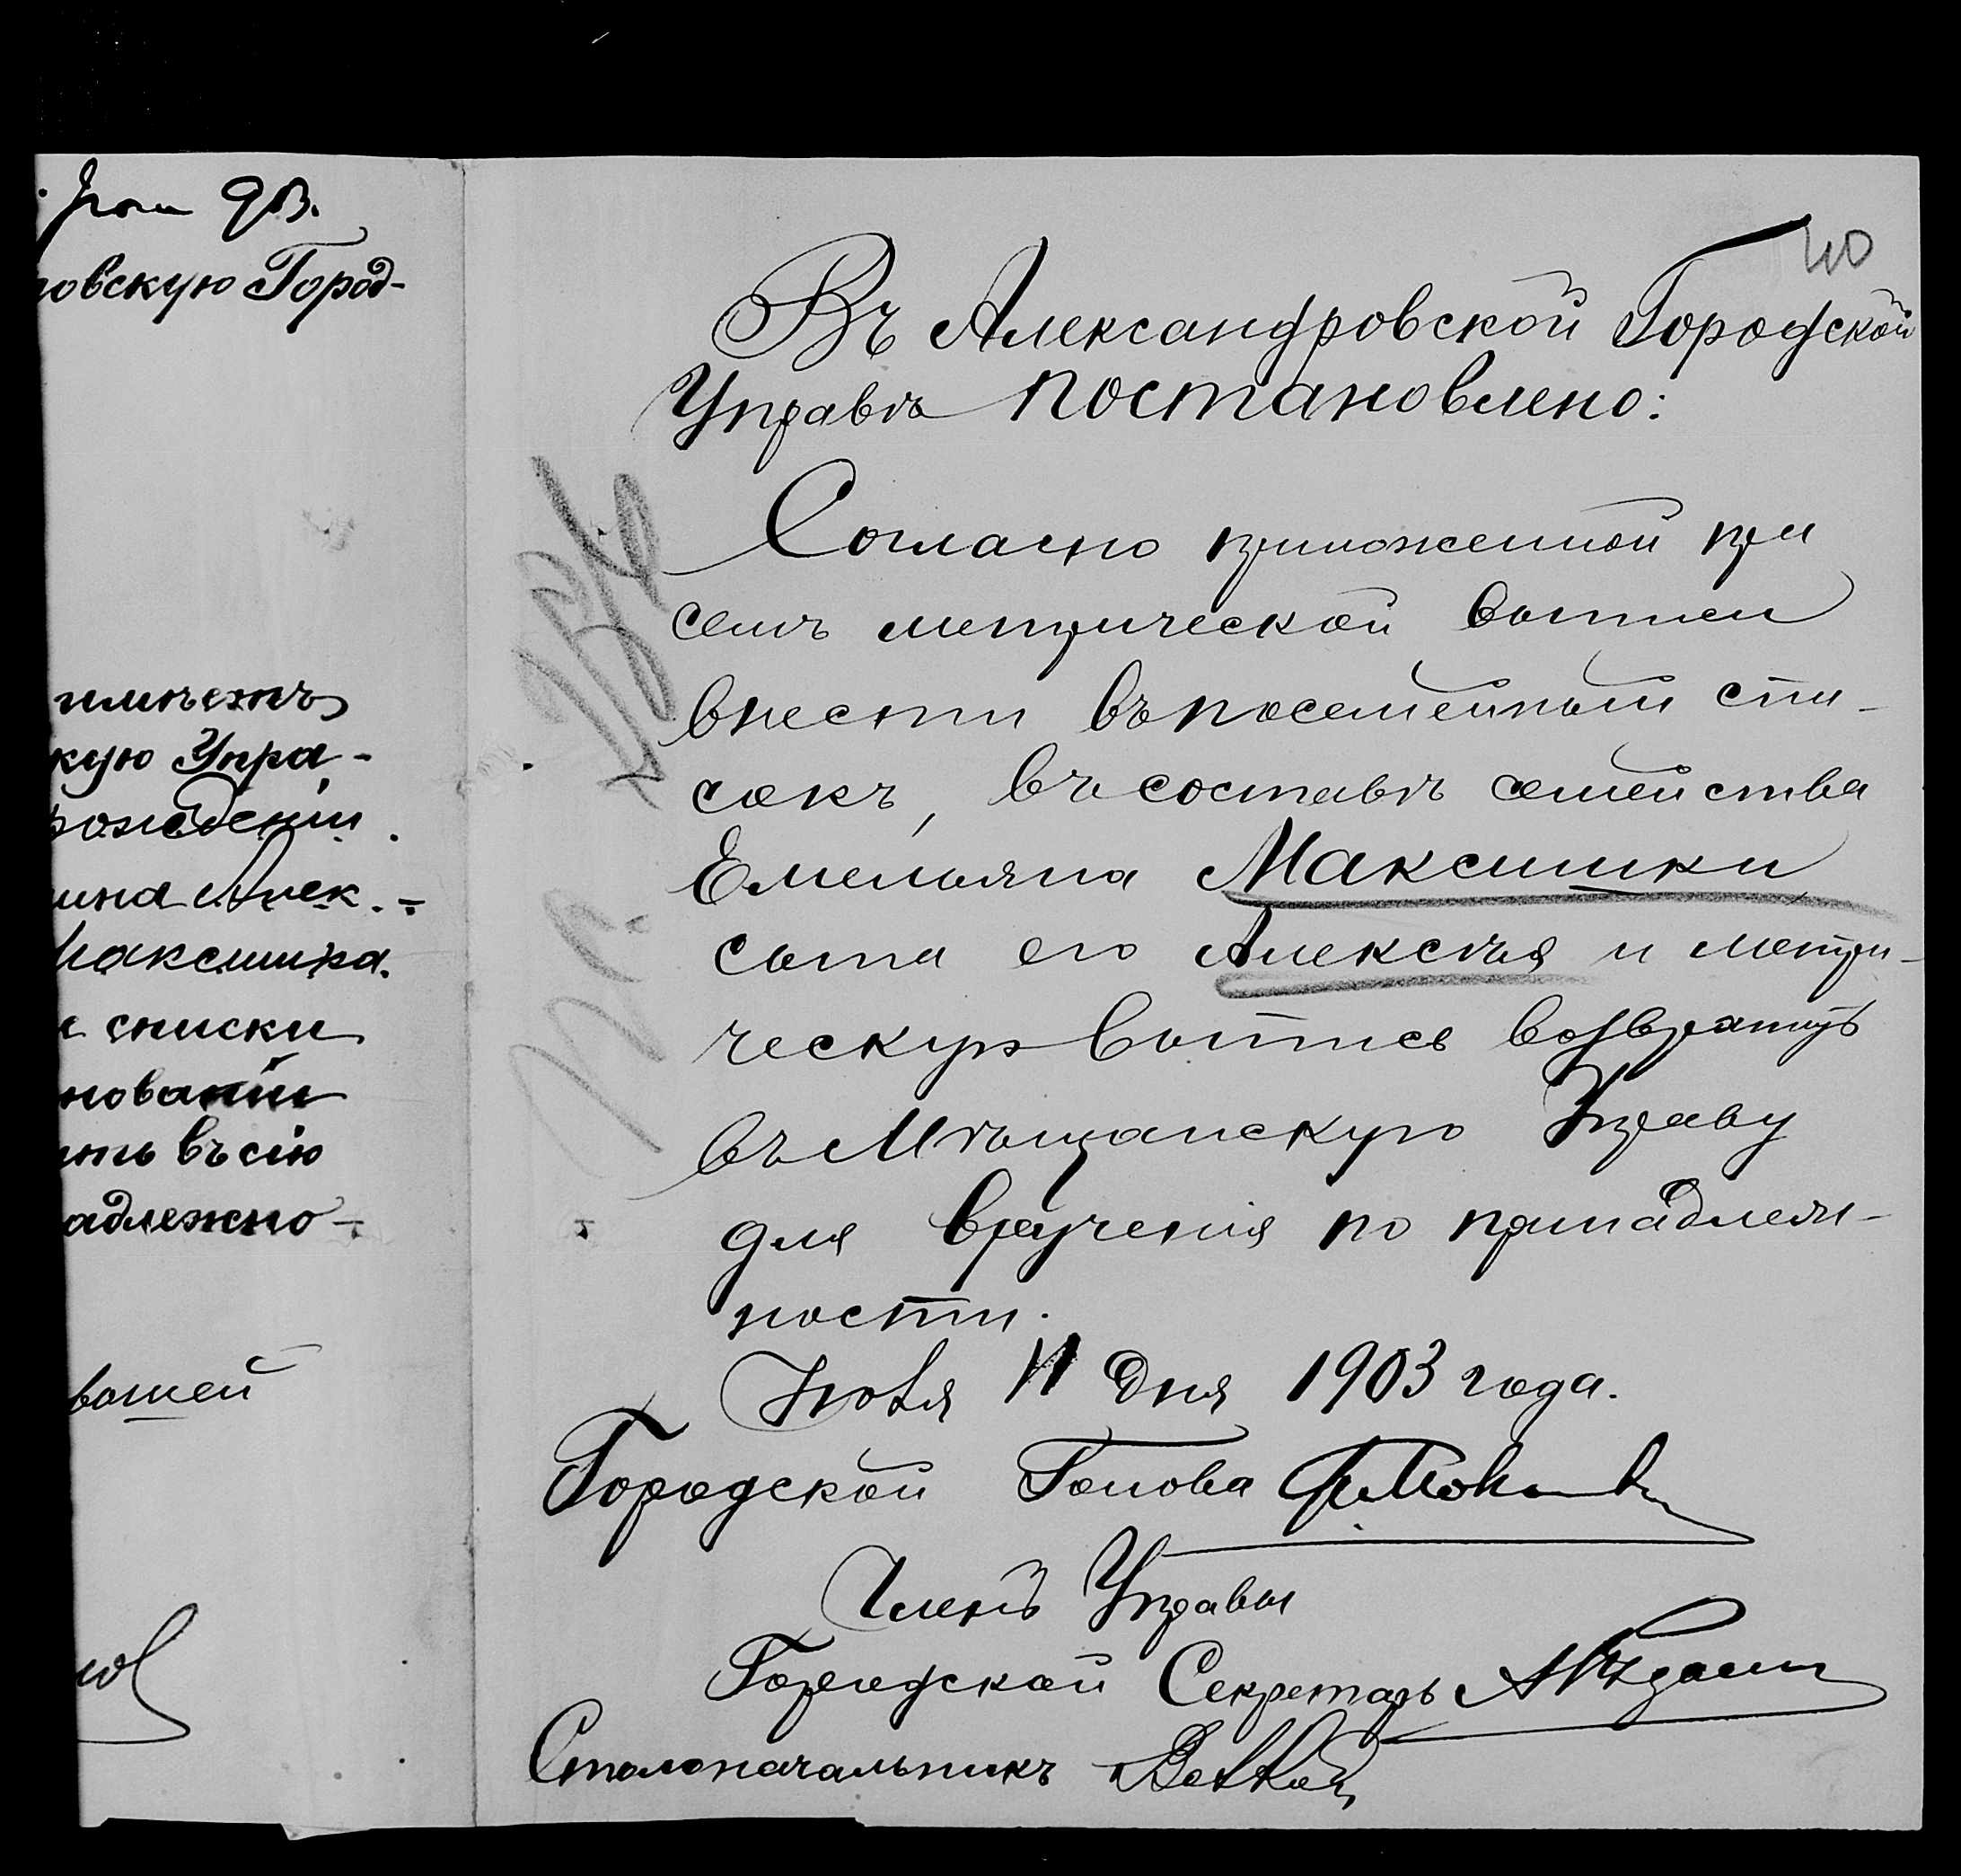 овскую Город-
имѣетъ
кую Упра-
рожденіи
ина Алек.-
Максимка.
списки
нованіи
ить въ сію
адлежно-
вашей
40
Въ Александровской Городской
Управѣ постановлено:
Согласно приложенной при
семъ метрической выписи
внести въ посемейный спи-
сокъ, въ составъ семейства
Емельяна Максимки
сына его Алексѣя и метри-
ческую выпись возвратить
въ Мѣщанскую Управу
для врученія по принадлеж-
ности.
Іюля 11 дня 1903 года.
Городской Голова
Членъ Управы
Городской Секретарь
Столоначальникъ